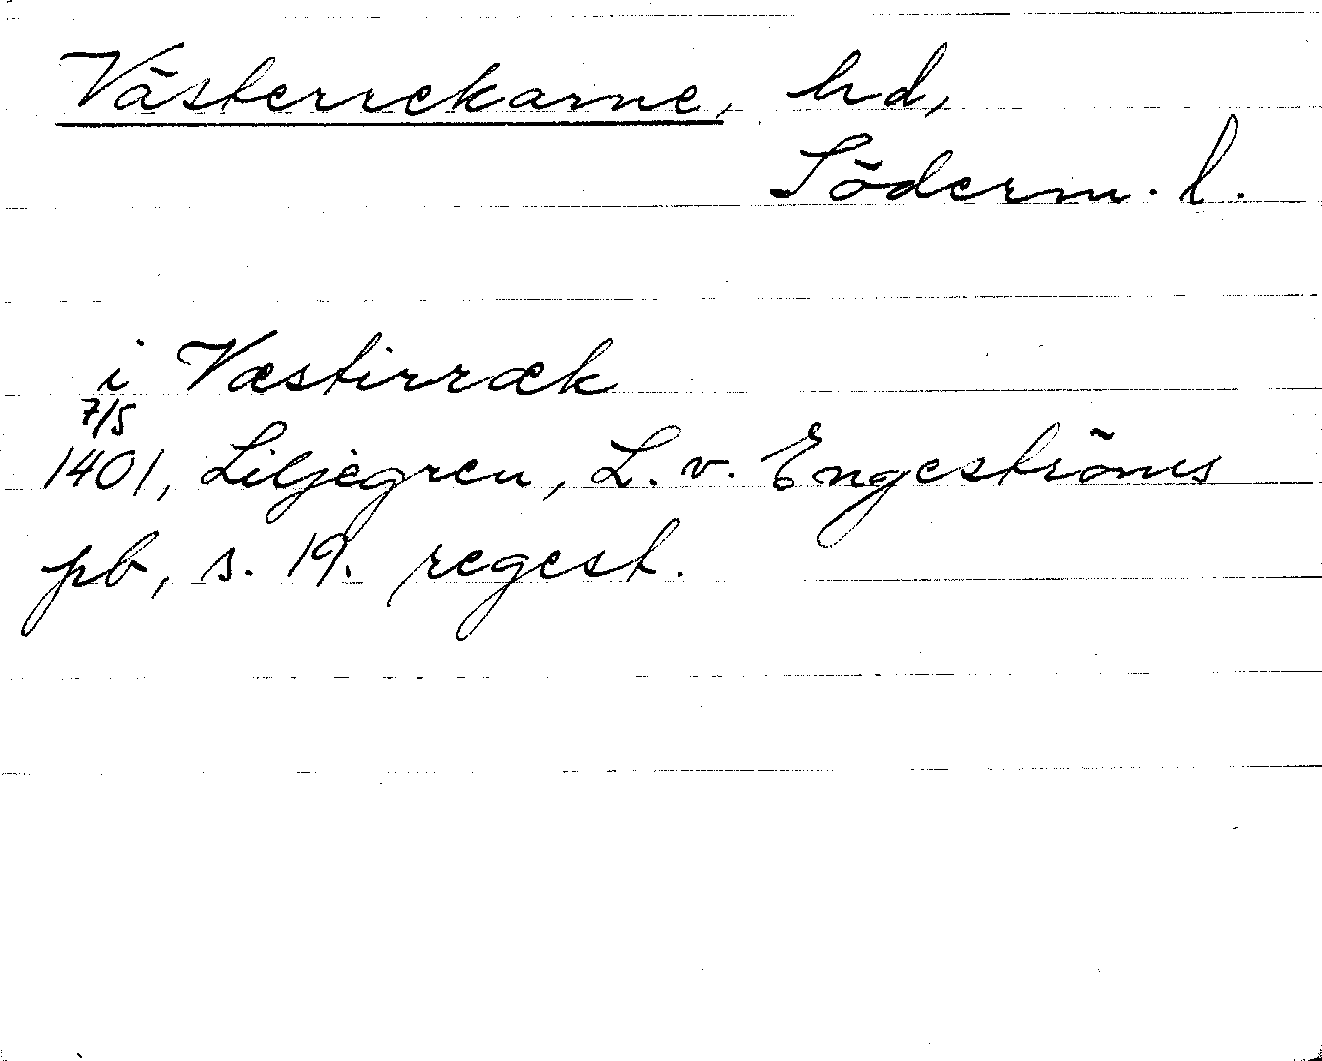 Västerrekarne, hd,
Söderm. l.
i Væstirræk
7/5
1401, Liljegren, L. v. Engeströms
pb, s. 19. regest.